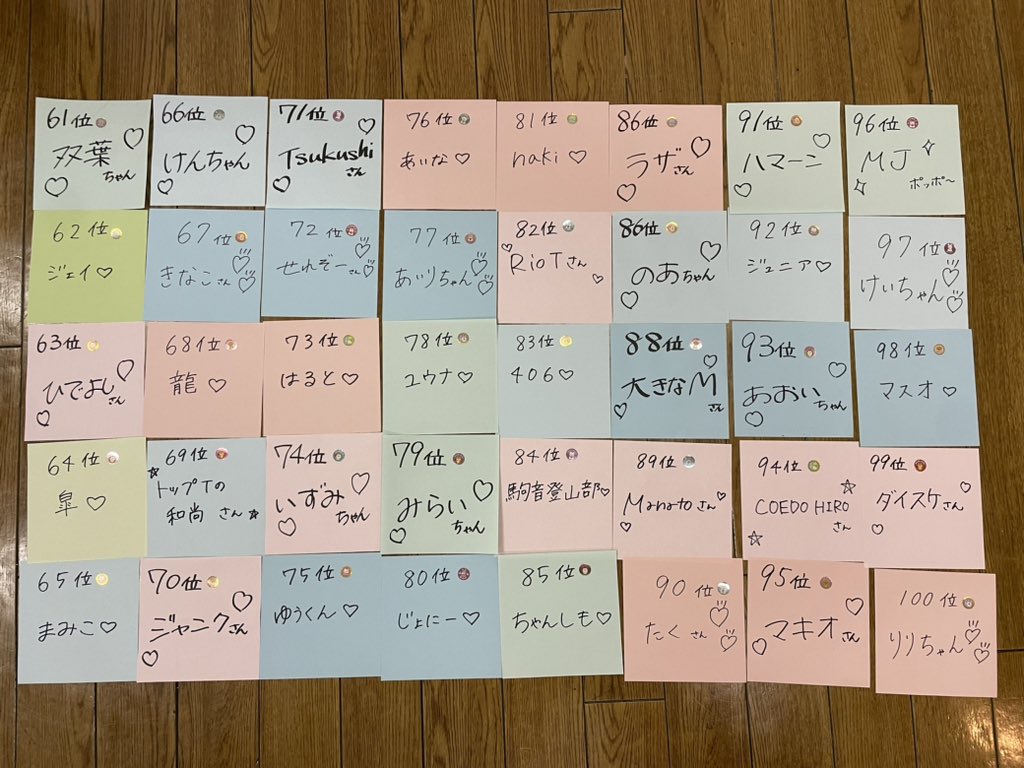 61位
双葉
ちゃん
62位
ジェイ♡
63位
ひでよし
さん
64位
皐♡
65位
まみこ♡
66位
けんちゃん
67位
きなこさん
68位
龍♡
69位
トップTの
和尚さん
70位
ジャンクさん
71位
Tsukushi
さん
72位
せれぞーさん
73位
はると♡
74位
いずみ
ちゃん
75位
ゆうくん♡
76位
あいな♡
77位
あいりちゃん
78位
ユウナ♡
79位
みらい
ちゃん
80位
じょにー♡
81位
naki♡
82位
RioTさん
83位
406♡
84位
駒音登山部♡
85位
ちゃんしも♡
86位
ラザさん
86位
のあちゃん
88位
大きなM
さん
89位
Manatoさん
90位
たくさん
91位
ハマーン
92位
ジュニア♡
93位
あおいちゃん
94位
COEDO HIRO
さん
95位
マキオさん
96位
MJ
ポッポ~
97位
けいちゃん
98位
マスオ♡
99位
ダイスケさん
100位
りりちゃん